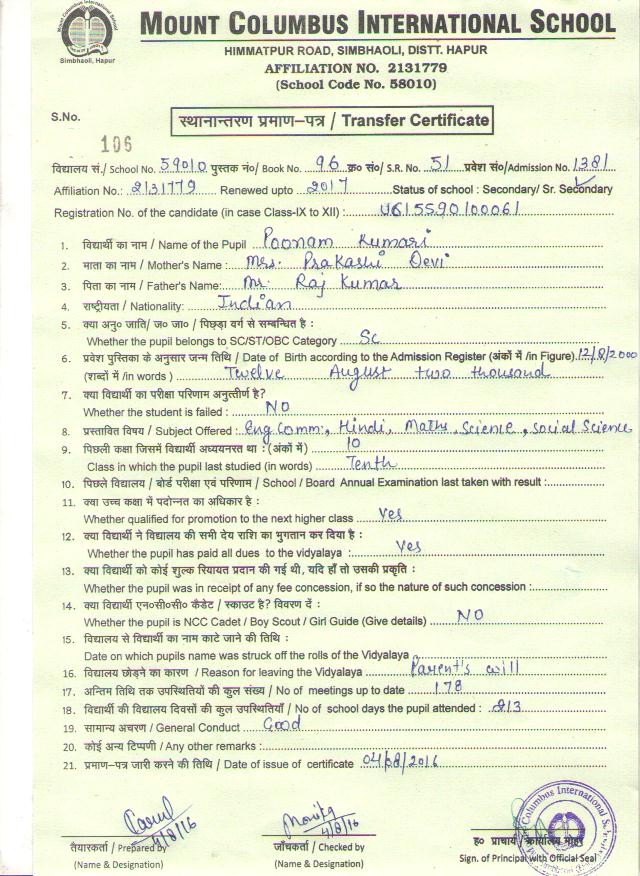 Mount Columbus International School
Simbhaoli, Hapur
MOUNT COLUMBUS INTERNATIONAL SCHOOL
HIMMATPUR ROAD, SIMBHAOLI, DISTT. HAPUR
AFFILIATION NO. 2131779
(School Code No. 58010)
S.No.
106
स्थानान्तरण प्रमाण–पत्र / Transfer Certificate
विद्यालय सं./ School No. 59010 पुस्तक नं०/ Book No. 96 क्र० सं०/ S.R. No. 51 प्रवेश सं०/Admission No. 1381
Affiliation No.: 2131779 Renewed upto 2017 Status of school : Secondary/ Sr. Secondary
Registration No. of the candidate (in case Class-IX to XII) : UG15590100061
1. विद्यार्थी का नाम / Name of the Pupil Poonam Kumari
2. माता का नाम / Mother's Name : Mrs. Prakashi Devi
3. पिता का नाम / Father's Name: Mr. Raj Kumar
4. राष्ट्रीयता / Nationality: Indian
5. क्या अनु० जाति/ ज० जा० / पिछड़ा वर्ग से सम्बन्धित है :
Whether the pupil belongs to SC/ST/OBC Category Sc
6. प्रवेश पुस्तिका के अनुसार जन्म तिथि / Date of Birth according to the Admission Register (अंकों में /in Figure) 12/8/2000
(शब्दों में /in words ) Twelve August two thousand
7. क्या विद्यार्थी का परीक्षा परिणाम अनुत्तीर्ण है?
Whether the student is failed : NO
8. प्रस्तावित विषय / Subject Offered : Eng Comm, Hindi, Maths, Science, Social Science
9. पिछली कक्षा जिसमें विद्यार्थी अध्ययनरत था : (अंकों में) 10
Class in which the pupil last studied (in words) Tenth
10. पिछले विद्यालय / बोर्ड परीक्षा एवं परिणाम / School / Board Annual Examination last taken with result :
11. क्या उच्च कक्षा में पदोन्नत का अधिकार है :
Whether qualified for promotion to the next higher class Yes
12. क्या विद्यार्थी ने विद्यालय की सभी देय राशि का भुगतान कर दिया है :
Whether the pupil has paid all dues to the vidyalaya : Yes
13. क्या विद्यार्थी को कोई शुल्क रियायत प्रदान की गई थी, यदि हाँ तो उसकी प्रकृति :
Whether the pupil was in receipt of any fee concession, if so the nature of such concession :
14. क्या विद्यार्थी एन०सी०सी० कैडेट / स्काउट है? विवरण दें :
Whether the pupil is NCC Cadet / Boy Scout / Girl Guide (Give details) NO
15. विद्यालय से विद्यार्थी का नाम काटे जाने की तिथि :
Date on which pupils name was struck off the rolls of the Vidyalaya
16. विद्यालय छोड़ने का कारण / Reason for leaving the Vidyalaya Parent's will
17. अन्तिम तिथि तक उपस्थितियों की कुल संख्य / No of meetings up to date 178
18. विद्यार्थी की विद्यालय दिवसों की कुल उपस्थितियाँ / No of school days the pupil attended : 213
19. सामान्य अचरण / General Conduct Good
20. कोई अन्य टिप्पणी / Any other remarks :
21. प्रमाण–पत्र जारी करने की तिथि / Date of issue of certificate 04/08/2016
4/8/16
Monika
4/8/16
Columbus International
तैयारकर्ता / Prepared by
जाँचकर्ता / Checked by
ह० प्राचार्य / कार्यालय मोहर
(Name & Designation)
(Name & Designation)
Sign. of Principal with Official Seal